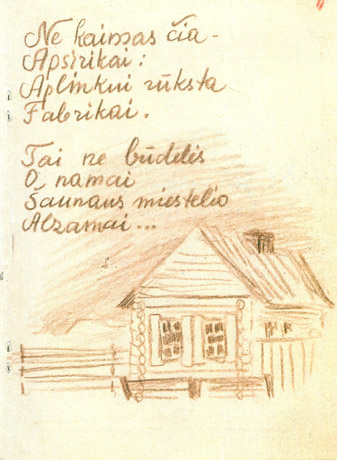 Ne kaimas čia -
Apsirikai:
Aplinkui rūksta
Fabrikai.
Tai ne būdelės
O namai
Šaunaus miestelio
Alzamai...